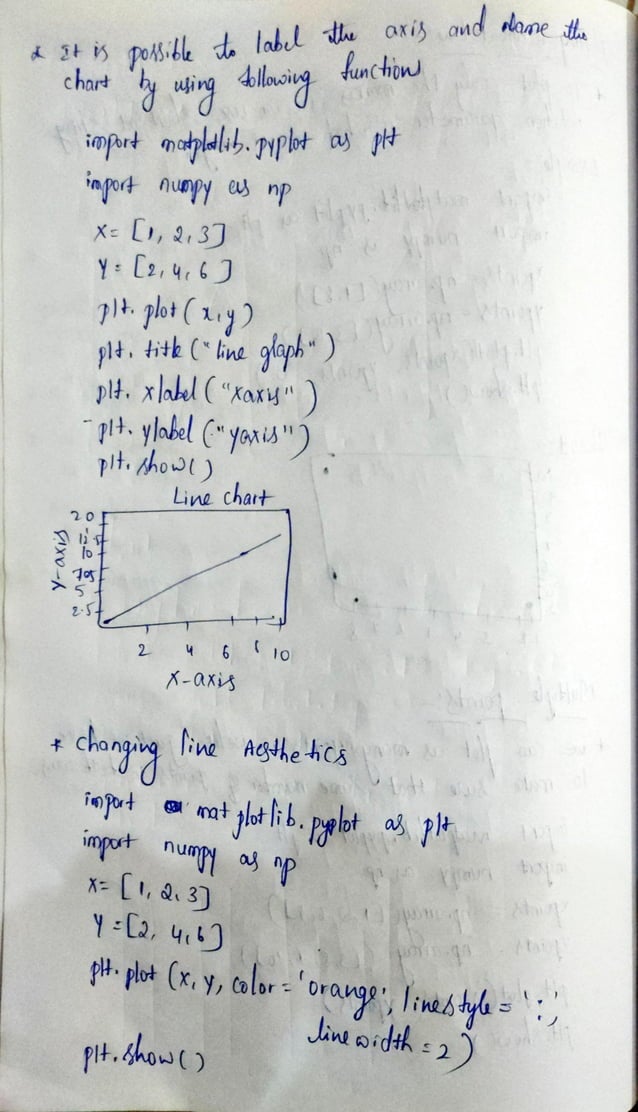 * It is possible to label the axis and Name the
chart by using following function
import matplotlib.pyplot as plt
import numpy as np
X= [1, 2, 3]
Y= [2, 4, 6]
plt. plot (x, y)
plt. title ("line glaph")
plt. xlabel ("xaxis")
plt. ylabel ("yaxis")
plt. show()
Line chart
20
12.5
10
7.5
5
2.5
y-axis
2 4 6 8 10
X-axis
* changing line Aesthetics
import matplotlib. pyplot as plt
import numpy as np
X= [1, 2, 3]
Y =[2, 4, 6]
plt. plot (x, y, color = 'orange', linestyle = ':',
linewidth = 2)
plt. show()